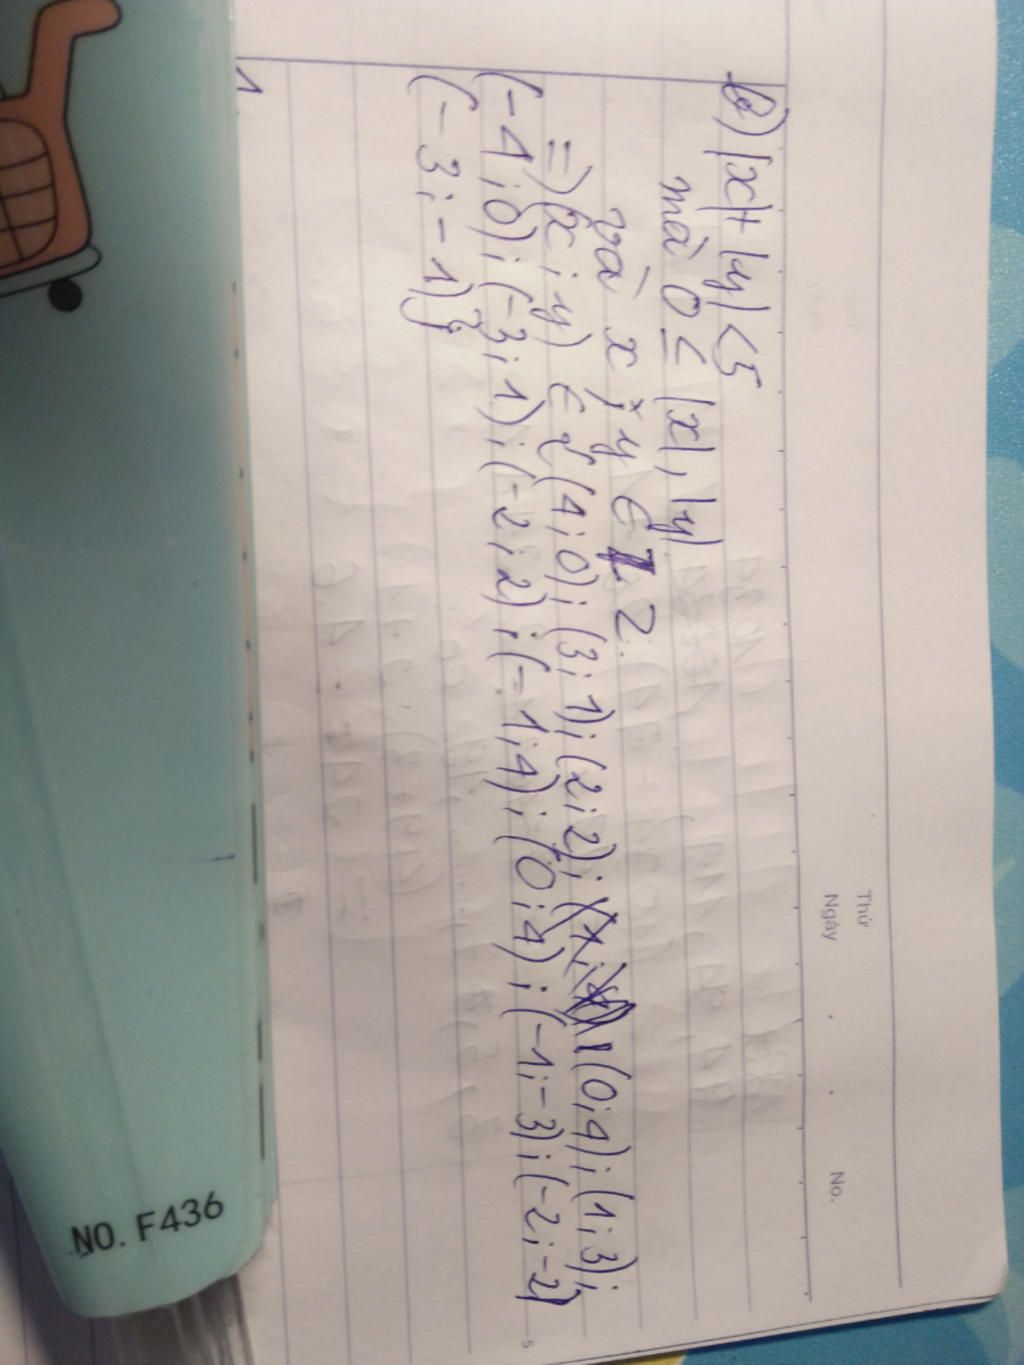 Thứ
Ngày
No.
b) |x| + |y| < 5
mà 0 ≤ |x|, |y|
và x, y ∈ Z.
=> (x; y) ∈ { (4; 0); (3; 1); (2; 2); (0; 4); (1; 3);
(-4; 0); (-3; 1); (-2; 2); (-1; 4); (0; 4); (-1; -3); (-2; -2)
(-3; -1)}
1
5
NO. F436